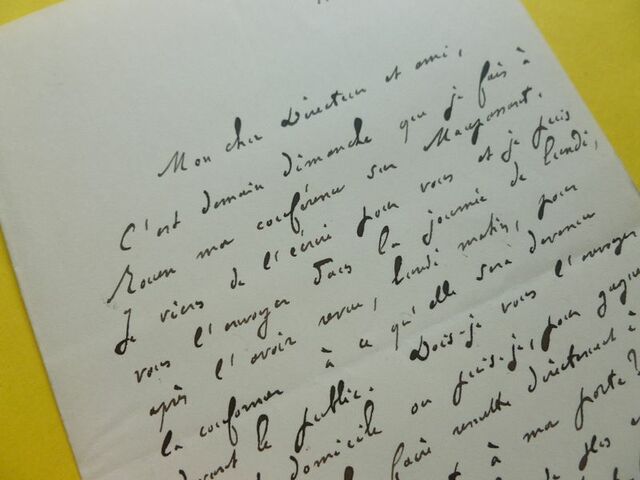 Mon cher Directeur et ami,
C'est demain dimanche que je fais à
Rouen ma conférence sur Maupassant.
Je viens de l'écrire pour vous et je puis
vous l'envoyer dans la journée de lundi,
après l'avoir revue, lundi matin, pour
la conformer à ce qu'elle sera devenue
devant le public. Dois-je vous l'envoyer
domicile ou puis-je, pour gagner
faire remettre directement à
à ma porte ?